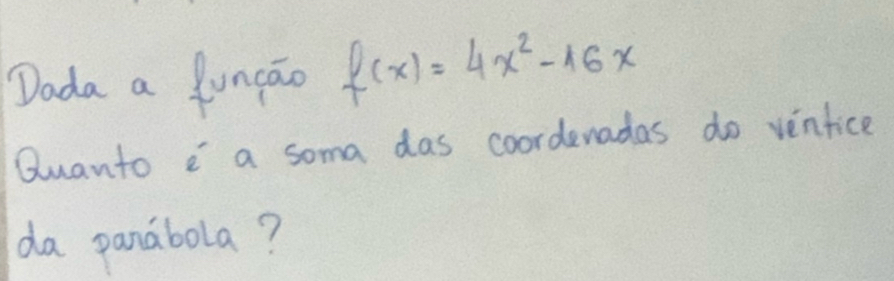 Dada a função f(x) = 4x² - 16x
Quanto é a soma das coordenadas do vértice
da parábola?